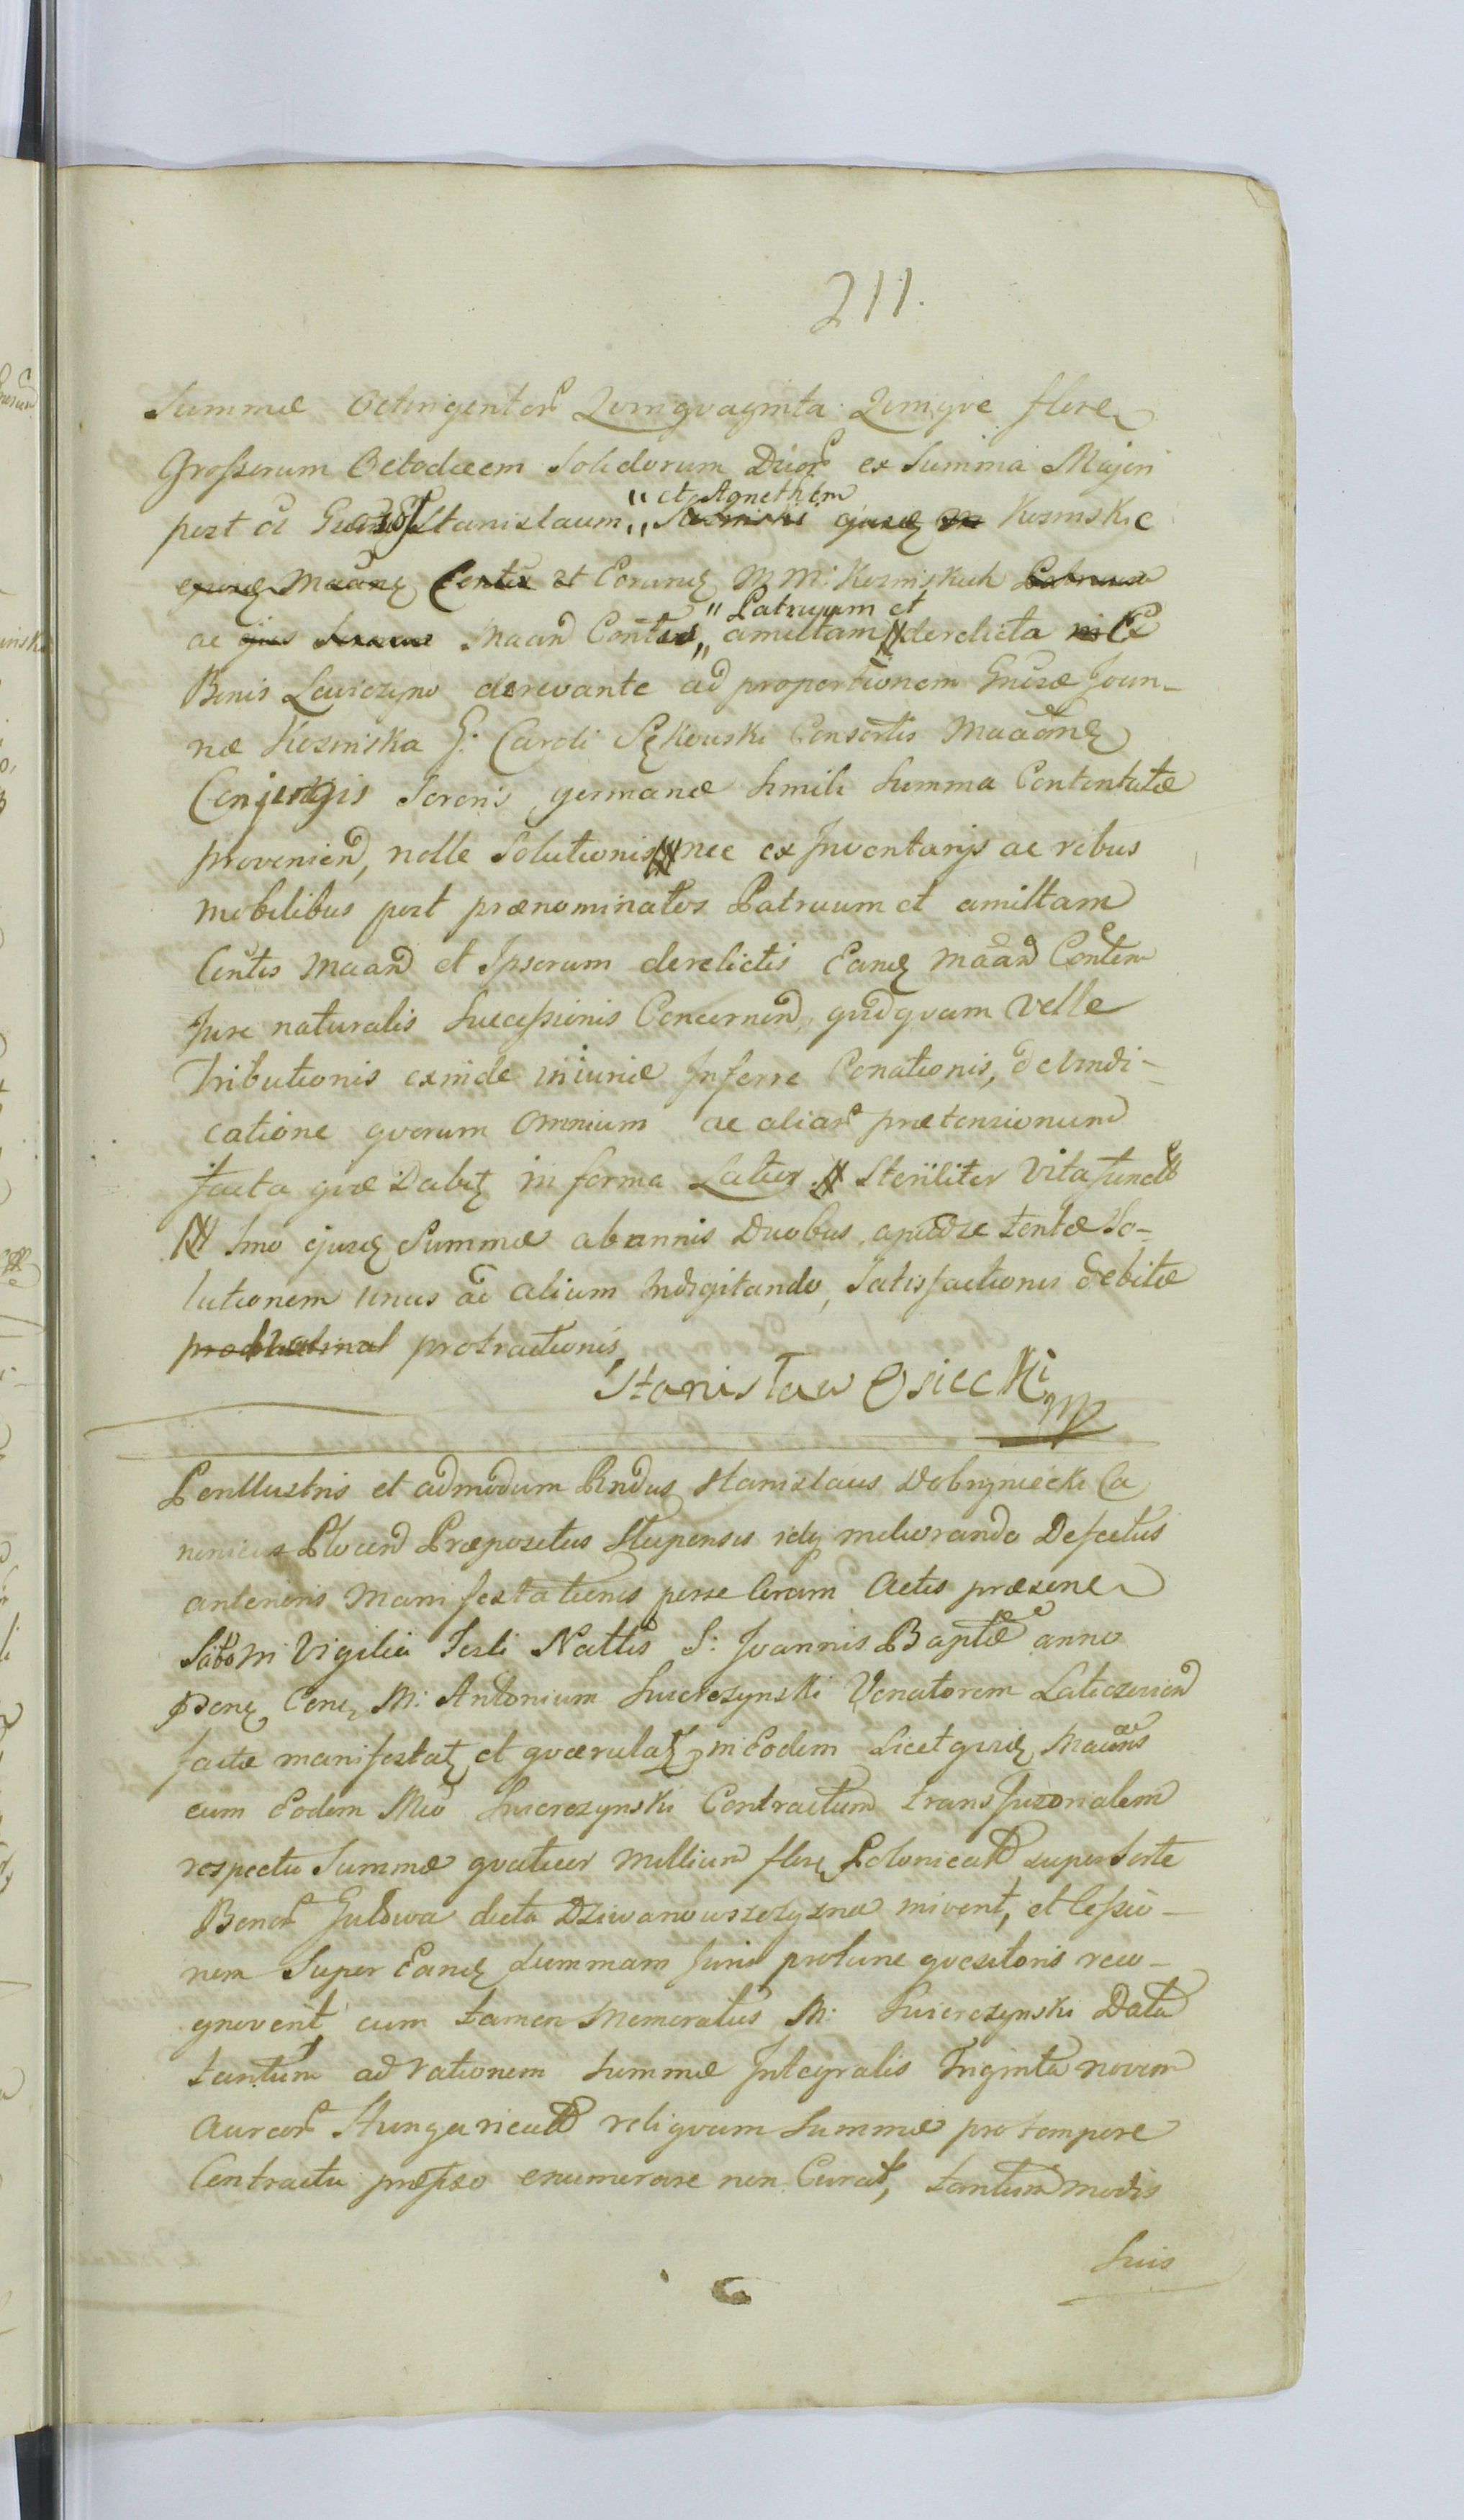 211.
Summæ Octingentor Quinquaginta Quinque floren
Grosserum Octodecem Solidorum Duor ex Summa Majori
post ol Stanislaum „ et Agnethem „ Kozinskie
et Eorund M M: Kozinskich
ac Maand Conten „ Patruum et „ amittam derelicta Ex
Bonis Lawiczyno derevante ad proportionem Gnisæ Joan-
næ Kozinska G: Caroli Sękowski Consortis Maaonę
Conjugis Sororis germanæ simili Summa Contentatæ
proveniend, nolle Solutionis nec ex Inventarijs ac rebus
mobilibus post prænominatos Patruum et amittam
Contis Maand et Ipsorum derelictis Eandę Maand Conten
Jure naturalis Successionis Concernend, quidquam Velle
Tributionis exinde iniuriæ Inferre Conationis, de Vindi-
catione quorum Omnium ac aliar prætensionum
facta quæ Dabit in forma Latior Steriliter Vita funct
Imo ejusdę Summæ ab annis Duobus, apud se tentæ So-
lutionem unus ad alium Indigitando, Satisfactionis debitæ
protractionis,
Stanisław Osiecki mp
Perillustris et admodum Rndus Stanislaus Dobrzniecki Ca
nonicus Plocend Præpositus Slupensis idq meliorando Defectus
anterioris Manifestationis per se Coram Actis præsene
Sabo in Vigilia Festi Nattis S: Joannis Baptæ anno
Cone M: Antonium Swierczynski Venatorem Laticzoviend
factæ manifestat et quærulat in Eodem Licet quisę Maans
cum Eodem Mio Swierczynski Contractum transfusorialem
respectu Summæ quatuor Millium flore Polonicat super Sorte
Bonor Gulowa dicta Dziwanowszczyzna inivent, et Cessio-
nem Super Eandę Summam Juris protunc quæsitoris reco-
gnovent, cum tamen Memoratus M: Swierczynski Data
tantum ad rationem Summæ Integralis Triginta novem
Aureor Hungaricat reliquam Summæ pro tempore
Contractu præfixo enumerare non Curat, tantum modis
Suis